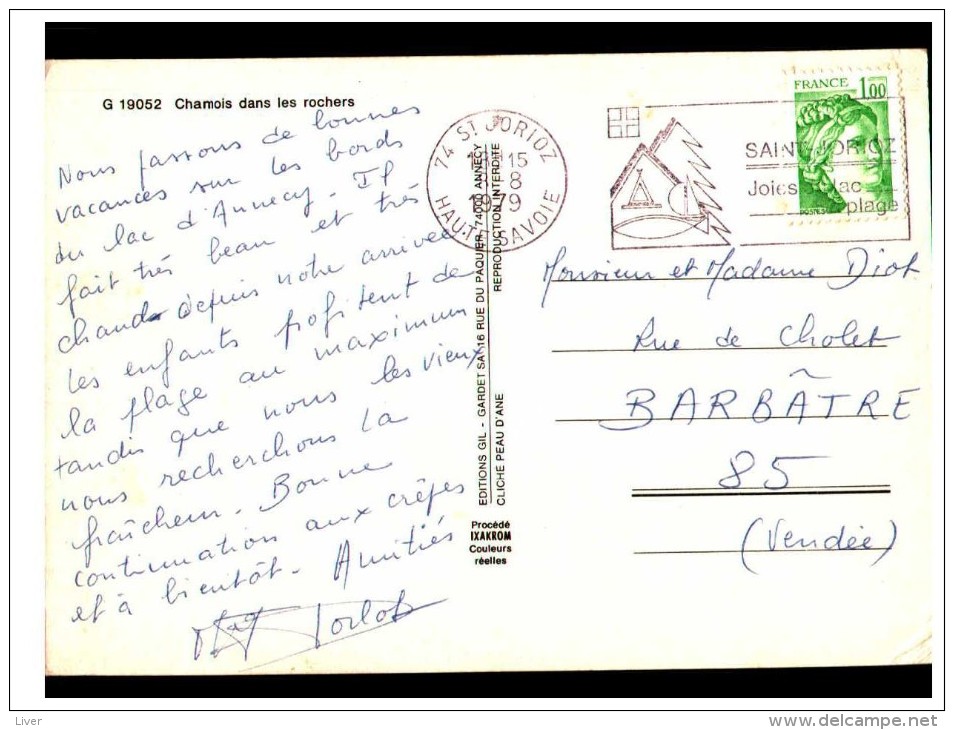 G 19052 Chamois dans les rochers
Nous passons de bonnes
vacances sur les bords
du lac d'Annecy. Il
fait très beau et très
chaud depuis notre arrivée
Les enfants profitent de
la plage au maximum
tandis que nous les vieux
nous recherchons la
fraîcheur. Bonne
continuation aux crêpes
et à bientôt. Amitiés
EDITIONS GIL - GARDET SA - 16 RUE DU PAQUIER, 74000 ANNECY
REPRODUCTION INTERDITE
CLICHE PEAU D'ANE
Procédé
IXAKROM
Couleurs
réelles
74 ST JORIOZ
15
8
1979
HAUTE SAVOIE
FRANCE 1,00
SAINT-JORIOZ
Joies lac
plage
POSTES
Monsieur et Madame Diot
Rue de Cholet
BARBÂTRE
85
(Vendée)
Liver
www.delcampe.net